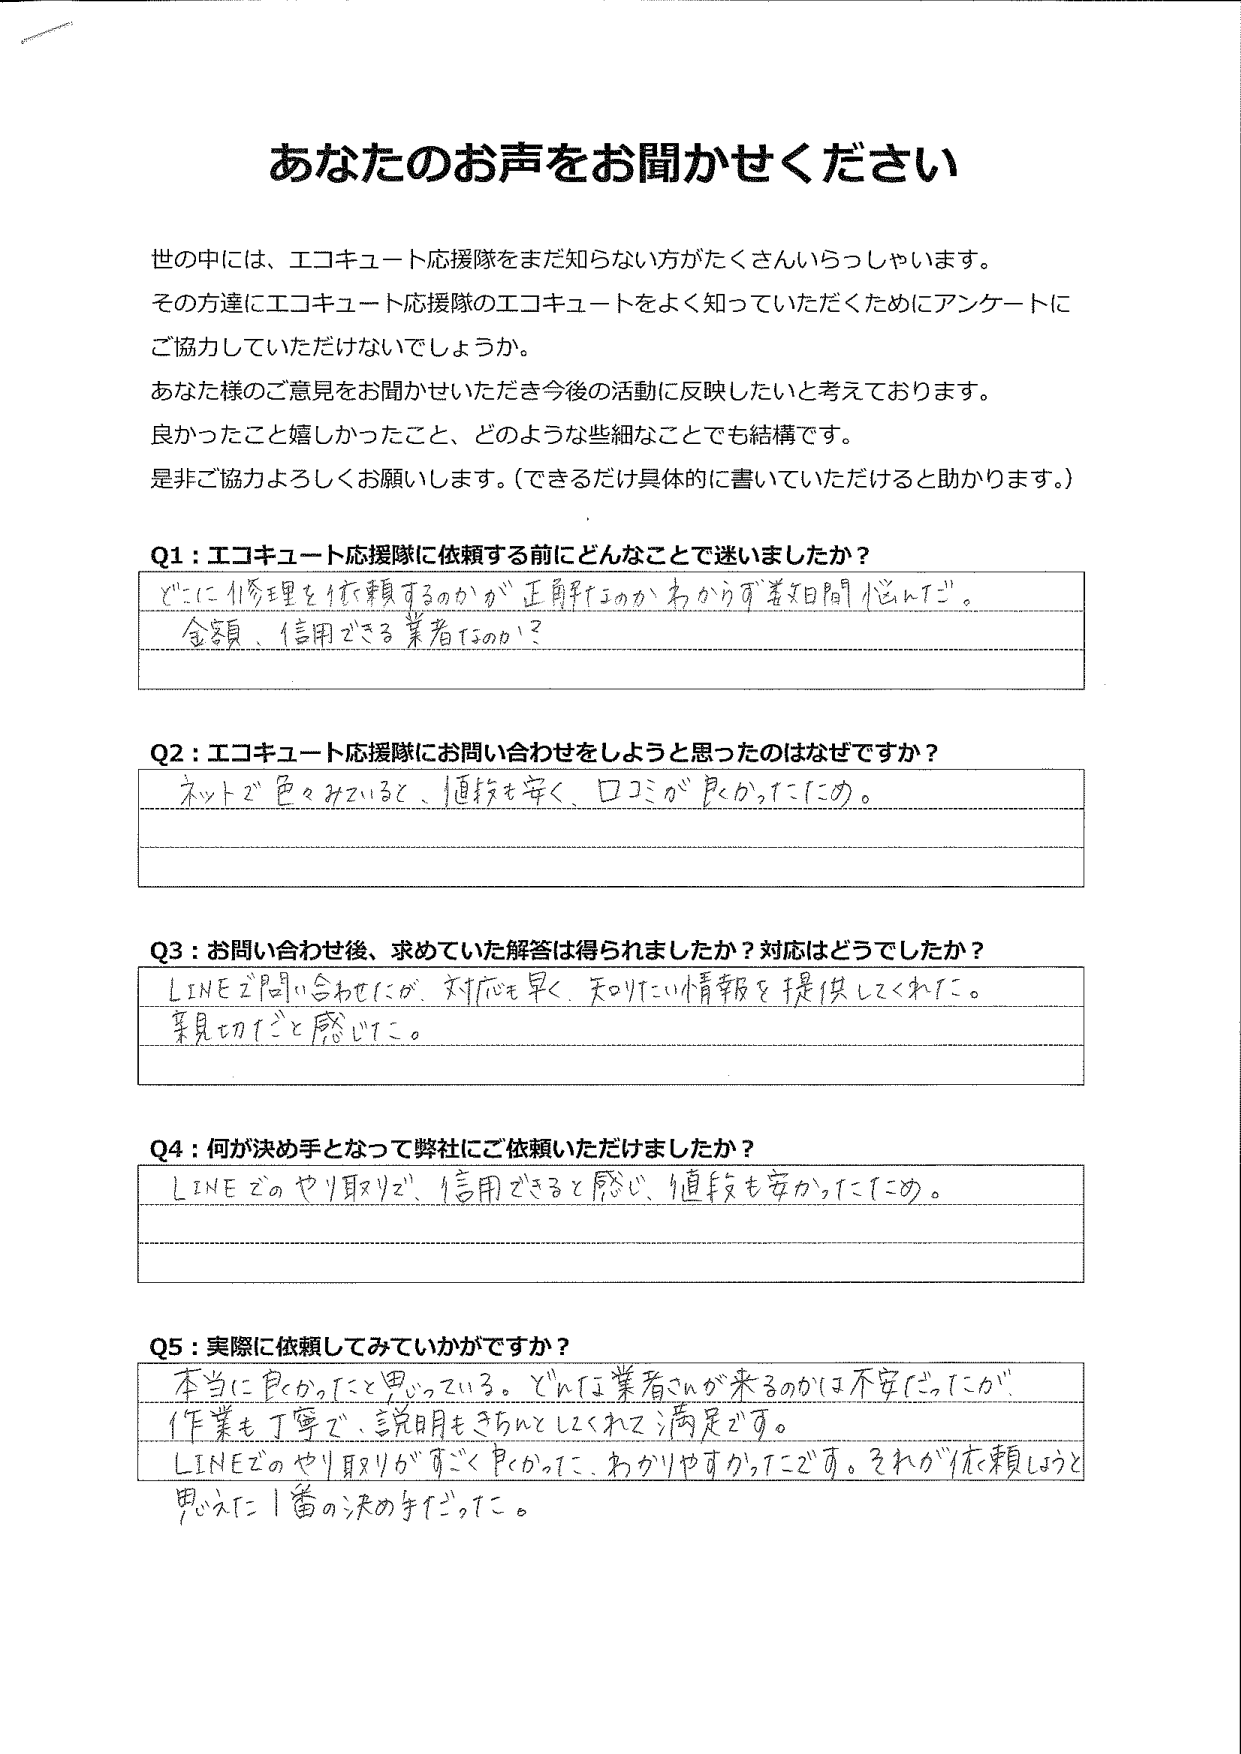 あなたのお声をお聞かせください
世の中には、エコキュート応援隊をまだ知らない方がたくさんいらっしゃいます。
その方達にエコキュート応援隊のエコキュートをよく知っていただくためにアンケートに
ご協力していただけないでしょうか。
あなた様のご意見をお聞かせいただき今後の活動に反映したいと考えております。
良かったこと嬉しかったこと、どのような些細なことでも結構です。
是非ご協力よろしくお願いします。(できるだけ具体的に書いていただけると助かります。)
Q1：エコキュート応援隊に依頼する前にどんなことで迷いましたか？
どこに修理を依頼するのかが正解なのかわからず数日間悩んだ。
金額、信用できる業者なのか？
Q2：エコキュート応援隊にお問い合わせをしようと思ったのはなぜですか？
ネットで色々みていると、値段も安く、口コミが良かったため。
Q3：お問い合わせ後、求めていた解答は得られましたか？対応はどうでしたか？
LINEで問い合わせたが、対応も早く、知りたい情報を提供してくれた。
親切だと感じた。
Q4：何が決め手となって弊社にご依頼いただけましたか？
LINEでのやり取りで、信用できると感じ、値段も安かったため。
Q5：実際に依頼してみていかがですか？
本当に良かったと思っている。どんな業者さんが来るのかは不安だったが、
作業も丁寧で、説明もきちんとしてくれて満足です。
LINEでのやり取りがすごく良かった、わかりやすかったです。それが依頼しようと
思えた1番の決め手だった。